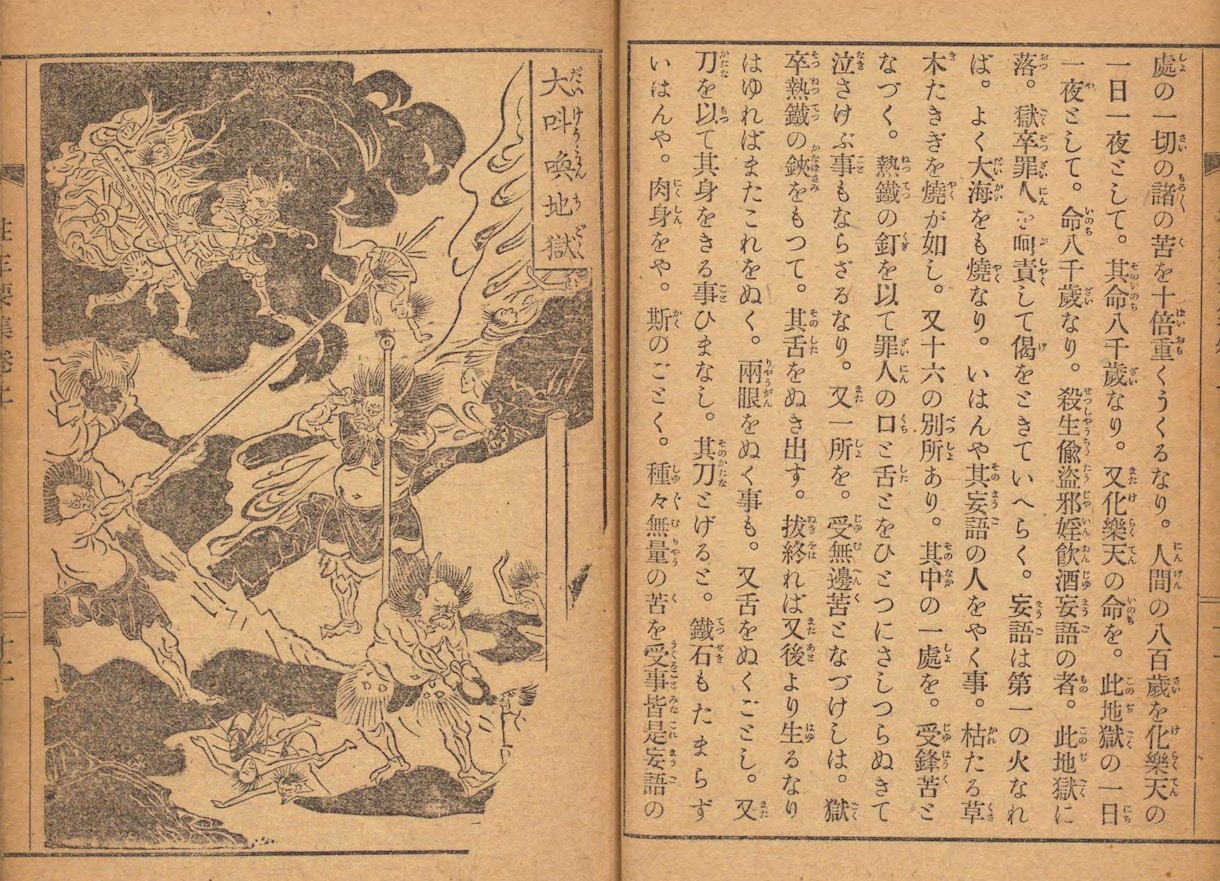 處の一切の諸の苦を十倍重くうくるなり。人間の八百歲を化樂天の
一日一夜として。其命八千歲なり。又化樂天の命を。此地獄の一日
一夜として。命八千歲なり。殺生偸盜邪婬飮酒妄語の者。此地獄に
落。獄卒罪人を呵責して偈をときていへらく。妄語は第一の火なれ
ば。よく大海をも燒なり。いはんや其妄語の人をやく事。枯たる草
木たきぎを燒が如し。又十六の別所あり。其中の一處を。受鋒苦と
なづく。熱鐵の釘を以て罪人の口と舌とをひとつにさしつらぬきて
泣さけぶ事もならざるなり。又一所を。受無邊苦となづけしは。獄
卒熱鐵の鋏をもつて。其舌をぬき出す。拔終れば又後より生るなり
はゆればまたこれをぬく。兩眼をぬく事も。又舌をぬくごとし。又
刀を以て其身をきる事ひまなし。其刀とげると。鐵石もたまらず
いはんや。肉身をや。斯のごとく。種々無量の苦を受事皆是妄語の
大叫喚地獄